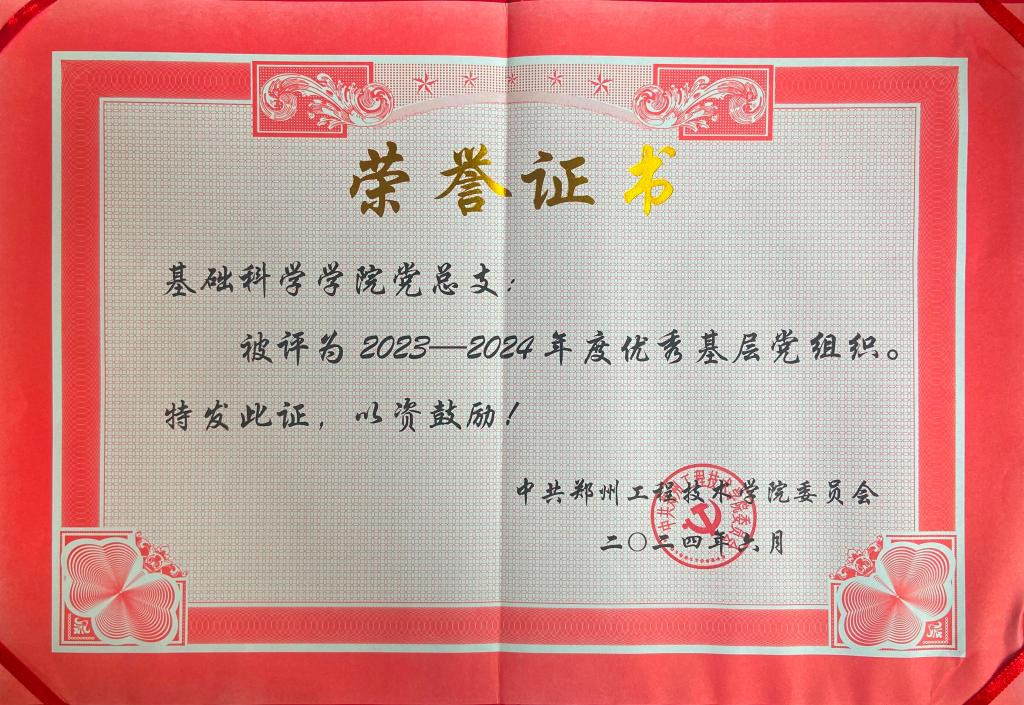 荣誉证书
基础科学学院党总支：
被评为2023—2024年度优秀基层党组织。
特发此证，以资鼓励！
中共郑州工程技术学院委员会
二〇二四年六月
中共郑州工程技术学院委员会